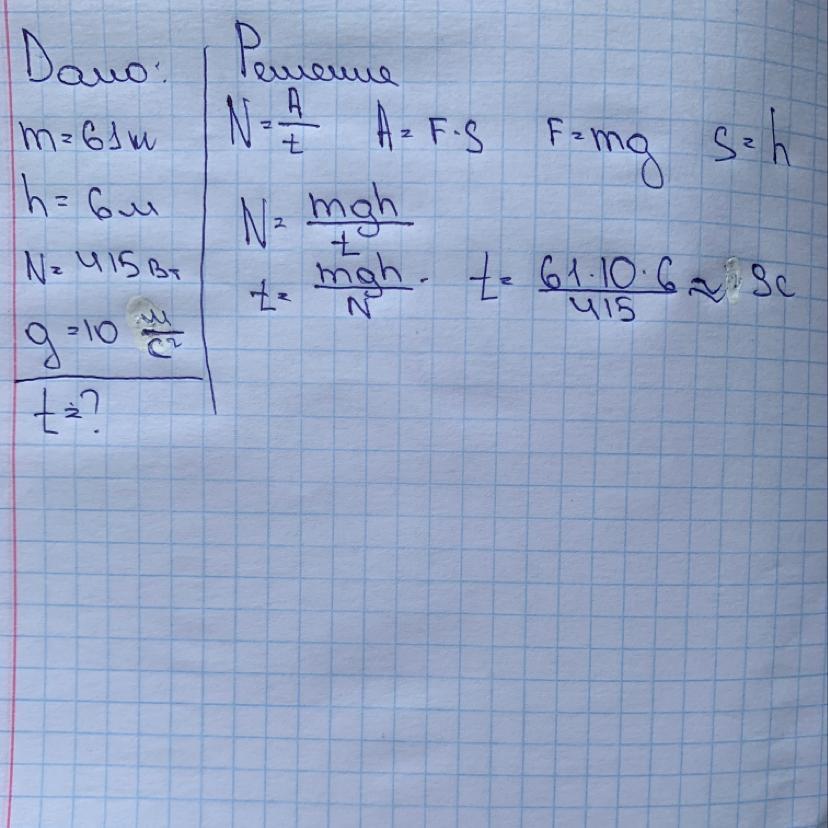 Дано:
m=61м
h=6м
N=415Вт
g=10 м/с²
t=?
Решение
N=A/t A=F·S F=mg S=h
N=mgh/t
t=mgh/N. t=61·10·6/415≈9с